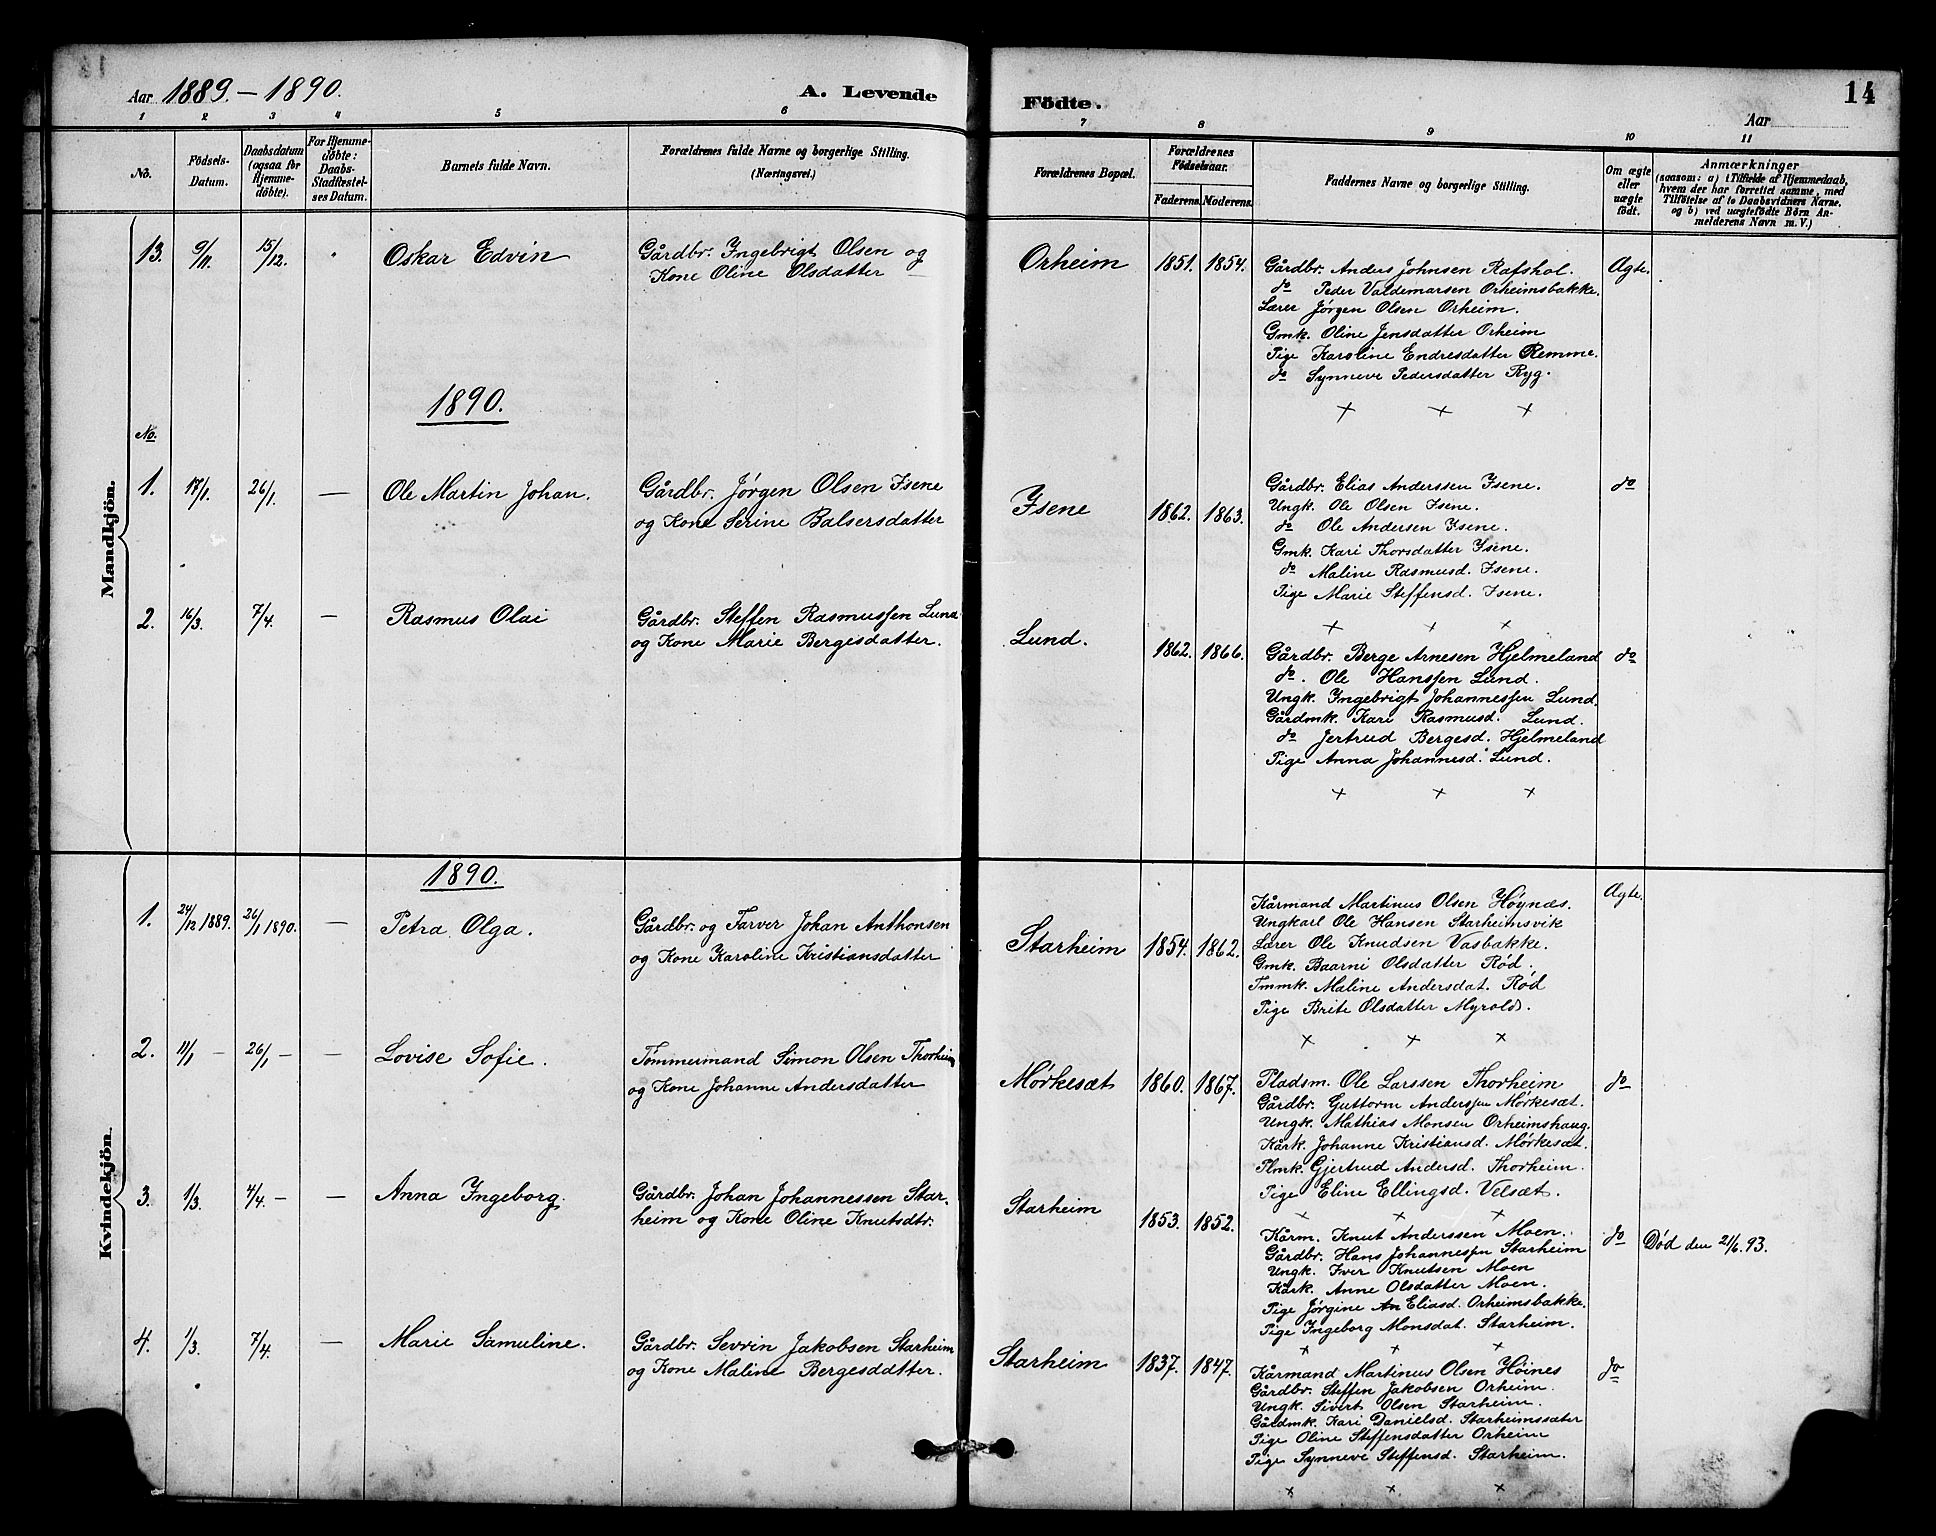 Aar 1889. – 1890.
A. Levende Födte.
14
Aar
1 2 3 4 5 6 7 8 9 10 11
No.
Födsels-Datum.
Daabsdatum (ogsaa for Hjemmedöbte).
For Hjemmedöbte: Daabs-Stadfæstelses Datum.
Barnets fulde Navn.
Forældrenes fulde Navne og borgerlige Stilling. (Næringsvei.)
Forældrenes Bopæl.
Forældrenes Födselsaar.
Faderens. Moderens.
Faddernes Navne og borgerlige Stilling.
Om ægte eller uægte födt.
Anmærkninger
(saasom: a) i Tilfælde af Hjemmedaab,
hvem der har forrettet samme, med
Tilföielse af to Daabsvidners Navne,
og b) ved uægtefödte Börn An-
melderens Navn m. V.)
Mandkjön.
13. 9/11. 15/12. " Oskar Edvin
Gårdbr. Ingebrigt Olsen og
Kone Oline Olsdatter
Orheim 1851. 1854.
Gårdbr. Anders Johnsen Rafshol.
do Peder Valdemarsen Orheimsbakke.
Lærer Jørgen Olsen Orheim.
Gmk. Oline Jensdatter Orheim
Pige Karoline Endresdatter Remme.
do Synneve Pedersdatter Ryg.
Ægte.
+ + +
1890.
No.
1. 17/1. 26/1. — Ole Martin Johan.
Gårdbr. Jørgen Olsen Isene
og Kone Serine Balsersdatter
Isene 1862. 1863.
Gårdbr. Elias Anderssen Isene.
Ungk. Ole Olsen Isene.
do Ole Andersen Isene.
Gmk. Kari Thorsdatter Isene.
do Maline Rasmusd. Isene.
Pige Marie Steffensd. Isene.
do
+ + ×
2. 16/3. 7/4. — Rasmus Olai
Gårdbr. Steffen Rasmussen Lund
og Kone Marie Bergesdatter.
Lund. 1862. 1866.
Gårdbr. Berge Arnesen Hjelmeland
do. Ole Hanssen Lund.
Ungk. Ingebrigt Johannessen Lund.
Gårdmk. Kari Rasmusd. Lund.
do Jertrud Bergesd. Hjelmeland
Pige Anna Johannesd. Lund.
do
+ + +
Kvindekjön.
1890.
1. 24/12 1889. 26/1 1890. — Petra Olga.
Gårdbr. og Farver Johan Anthonsen
og Kone Karoline Kristiansdatter
Starheim 1854. 1862.
Kårmand Martinus Olsen Høynæs.
Ungkarl Ole Hansen Starheimsvik
Lærer Ole Knudsen Vasbakke.
Gmk. Baarni Olsdatter Rød.
Tmmk. Maline Andersdat. Rød
Pige Brite Olsdatter Myrold.
Ægte.
× × ×
2. 11/1 – 26/1 – — Lovise Sofie.
Tømmermand Simon Olsen Thorheim
og Kone Johanne Andersdatter
Mørkesæt 1860. 1867.
Pladsm. Ole Larssen Thorheim
Gårdbr. Guttorm Anderssen Mørkesæt.
Ungk. Mathias Monsen Orheimshaug.
Kårk. Johanne Kristiansd. Mørkesæt.
Plmk. Gjertrud Andersd. Thorheim.
Pige Eline Ellingsd. Velsæt.
do
× × ×
3. 1/3. 4/4 – — Anna Ingeborg.
Gårdbr. Johan Johannessen Star-
heim og Kone Oline Knutsdtr.
Starheim 1853. 1852.
Kårm. Knut Anderssen Moen.
Gårdbr. Hans Johannessen Starheim
Ungk. Iver Knutsen Moen
Kårk. Anne Olsdatter Moen.
Pige Jørgine An Eliasd. Orheimsbakke.
Pige Ingeborg Monsdat. Starheim.
do
Død den 21/6. 93.
× × ×
4. 1/3. 7/4. — Marie Samuline.
Gårdbr. Sevrin Jakobsen Starheim
og Kone Maline Bergesdatter.
Starheim 1837. 1847.
Kårmand Martinus Olsen Høines
Gårdbr. Steffen Jakobsen Orheim.
Ungk. Sivert Olsen Starheim.
Gårdmk. Kari Danielsd. Starheimssæter
Pige Oline Steffensdatter Orheim
Pige Synneve Steffensd. Starheim.
do
× × ×